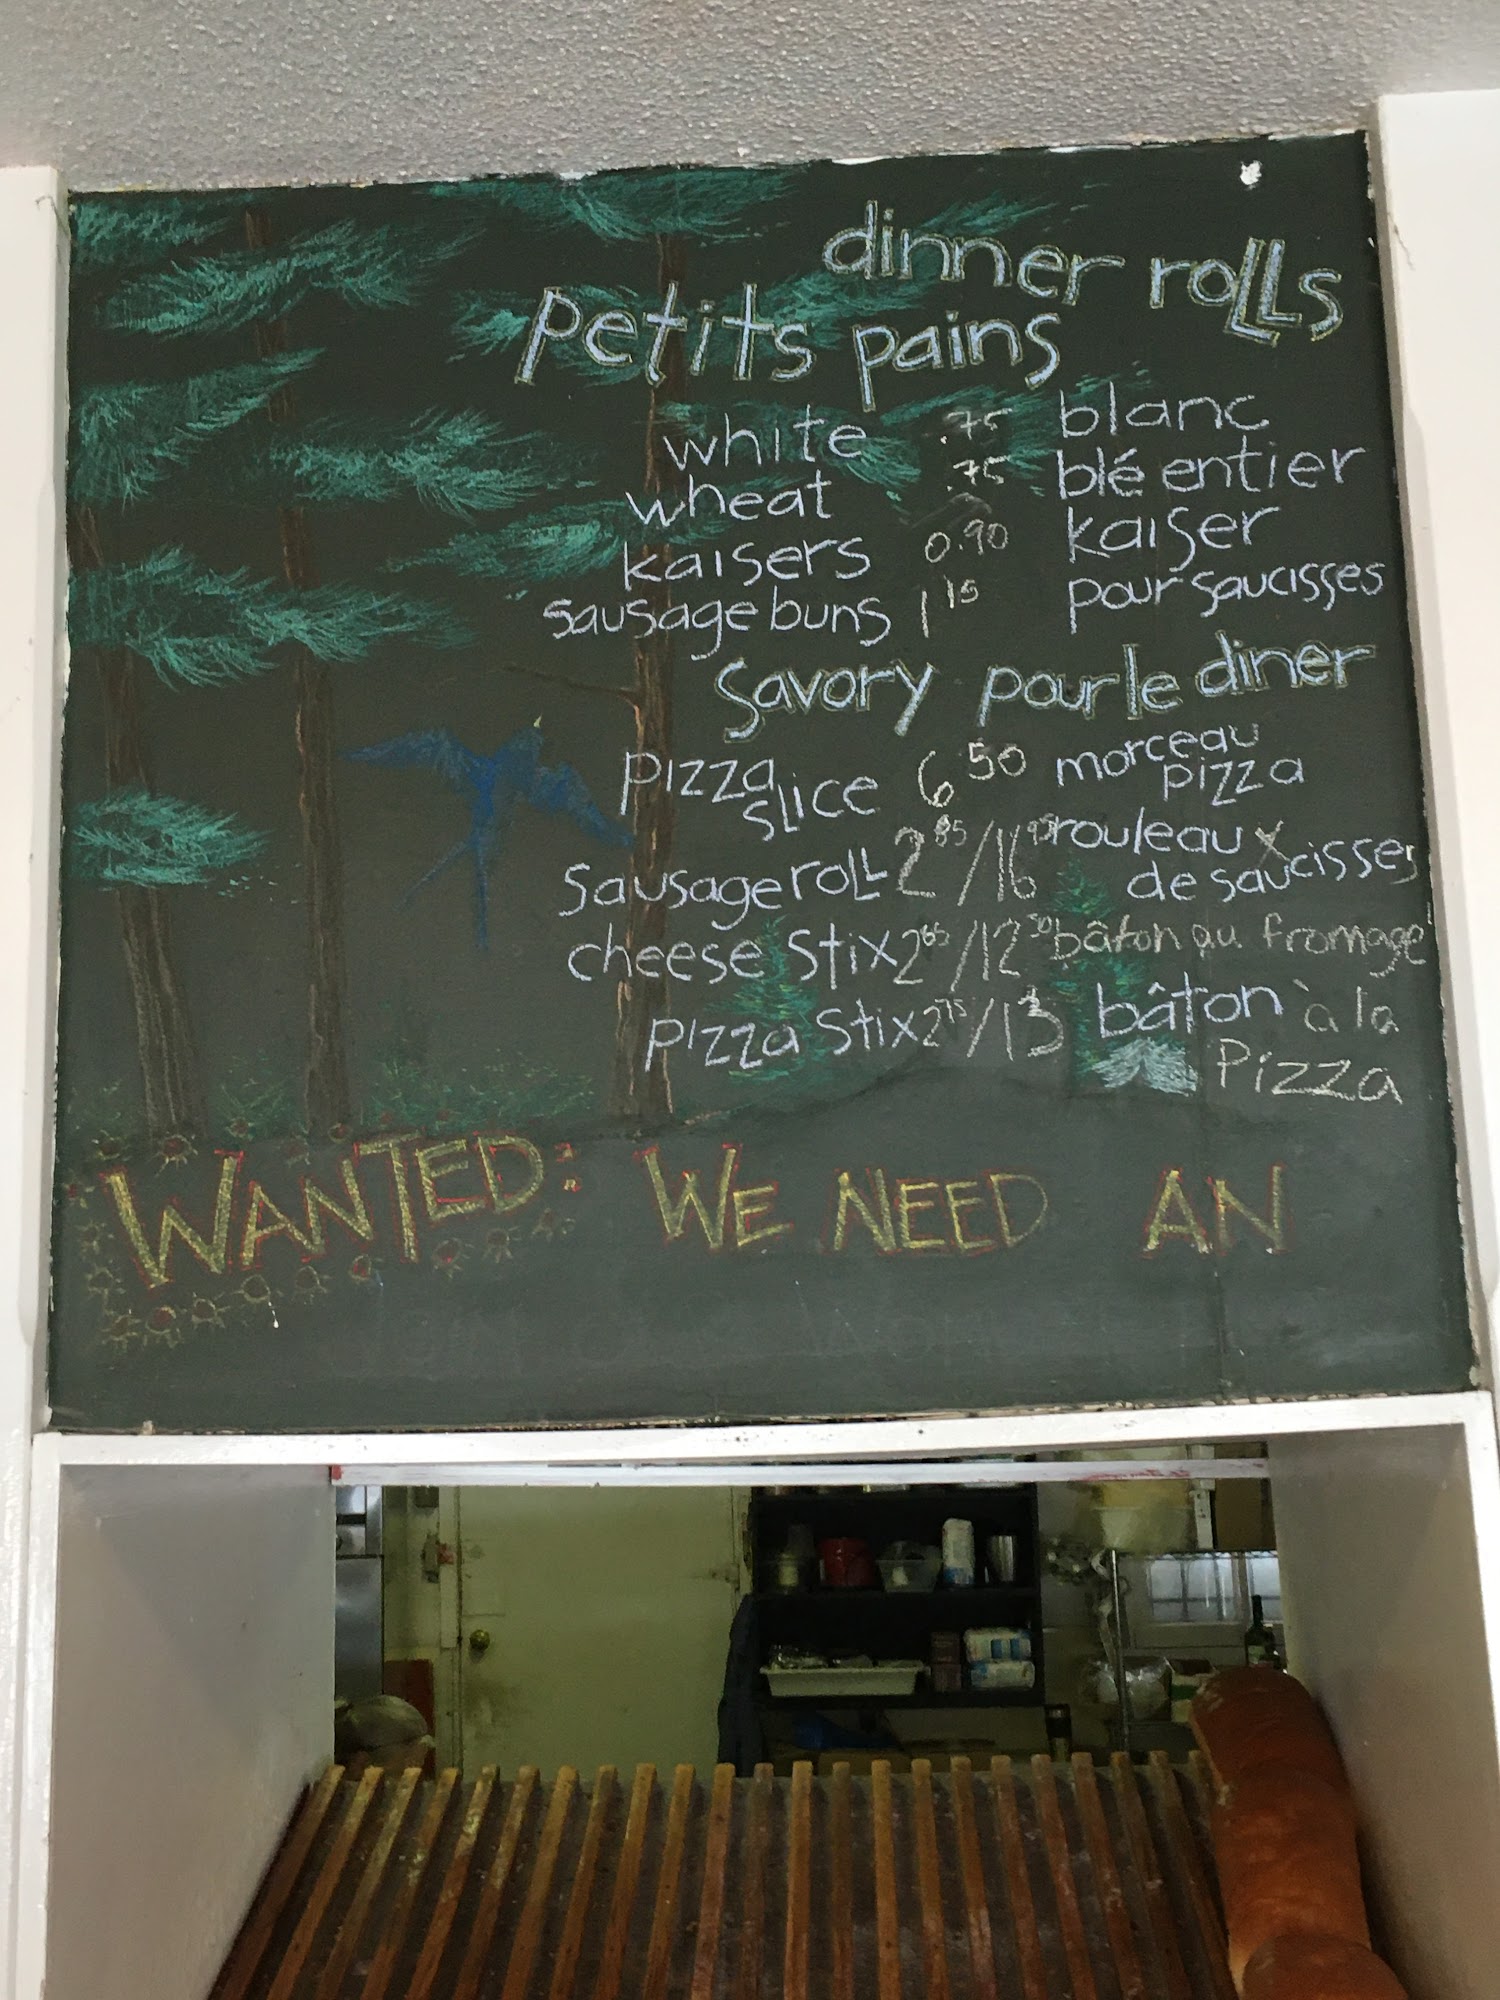 dinner rolls
petits pains
white .75 blanc
wheat .75 blé entier
kaisers 0.90 kaiser
sausage buns 1 15 pour saucisses
Savory pour le diner
pizza slice 6 50 morceau pizza
sausage roll 2 85/16 95 rouleau x de saucisses
cheese stix 2 65/12 50 bâton au fromage
pizza stix 2 75/13 bâton à la
pizza
WANTED: WE NEED AN